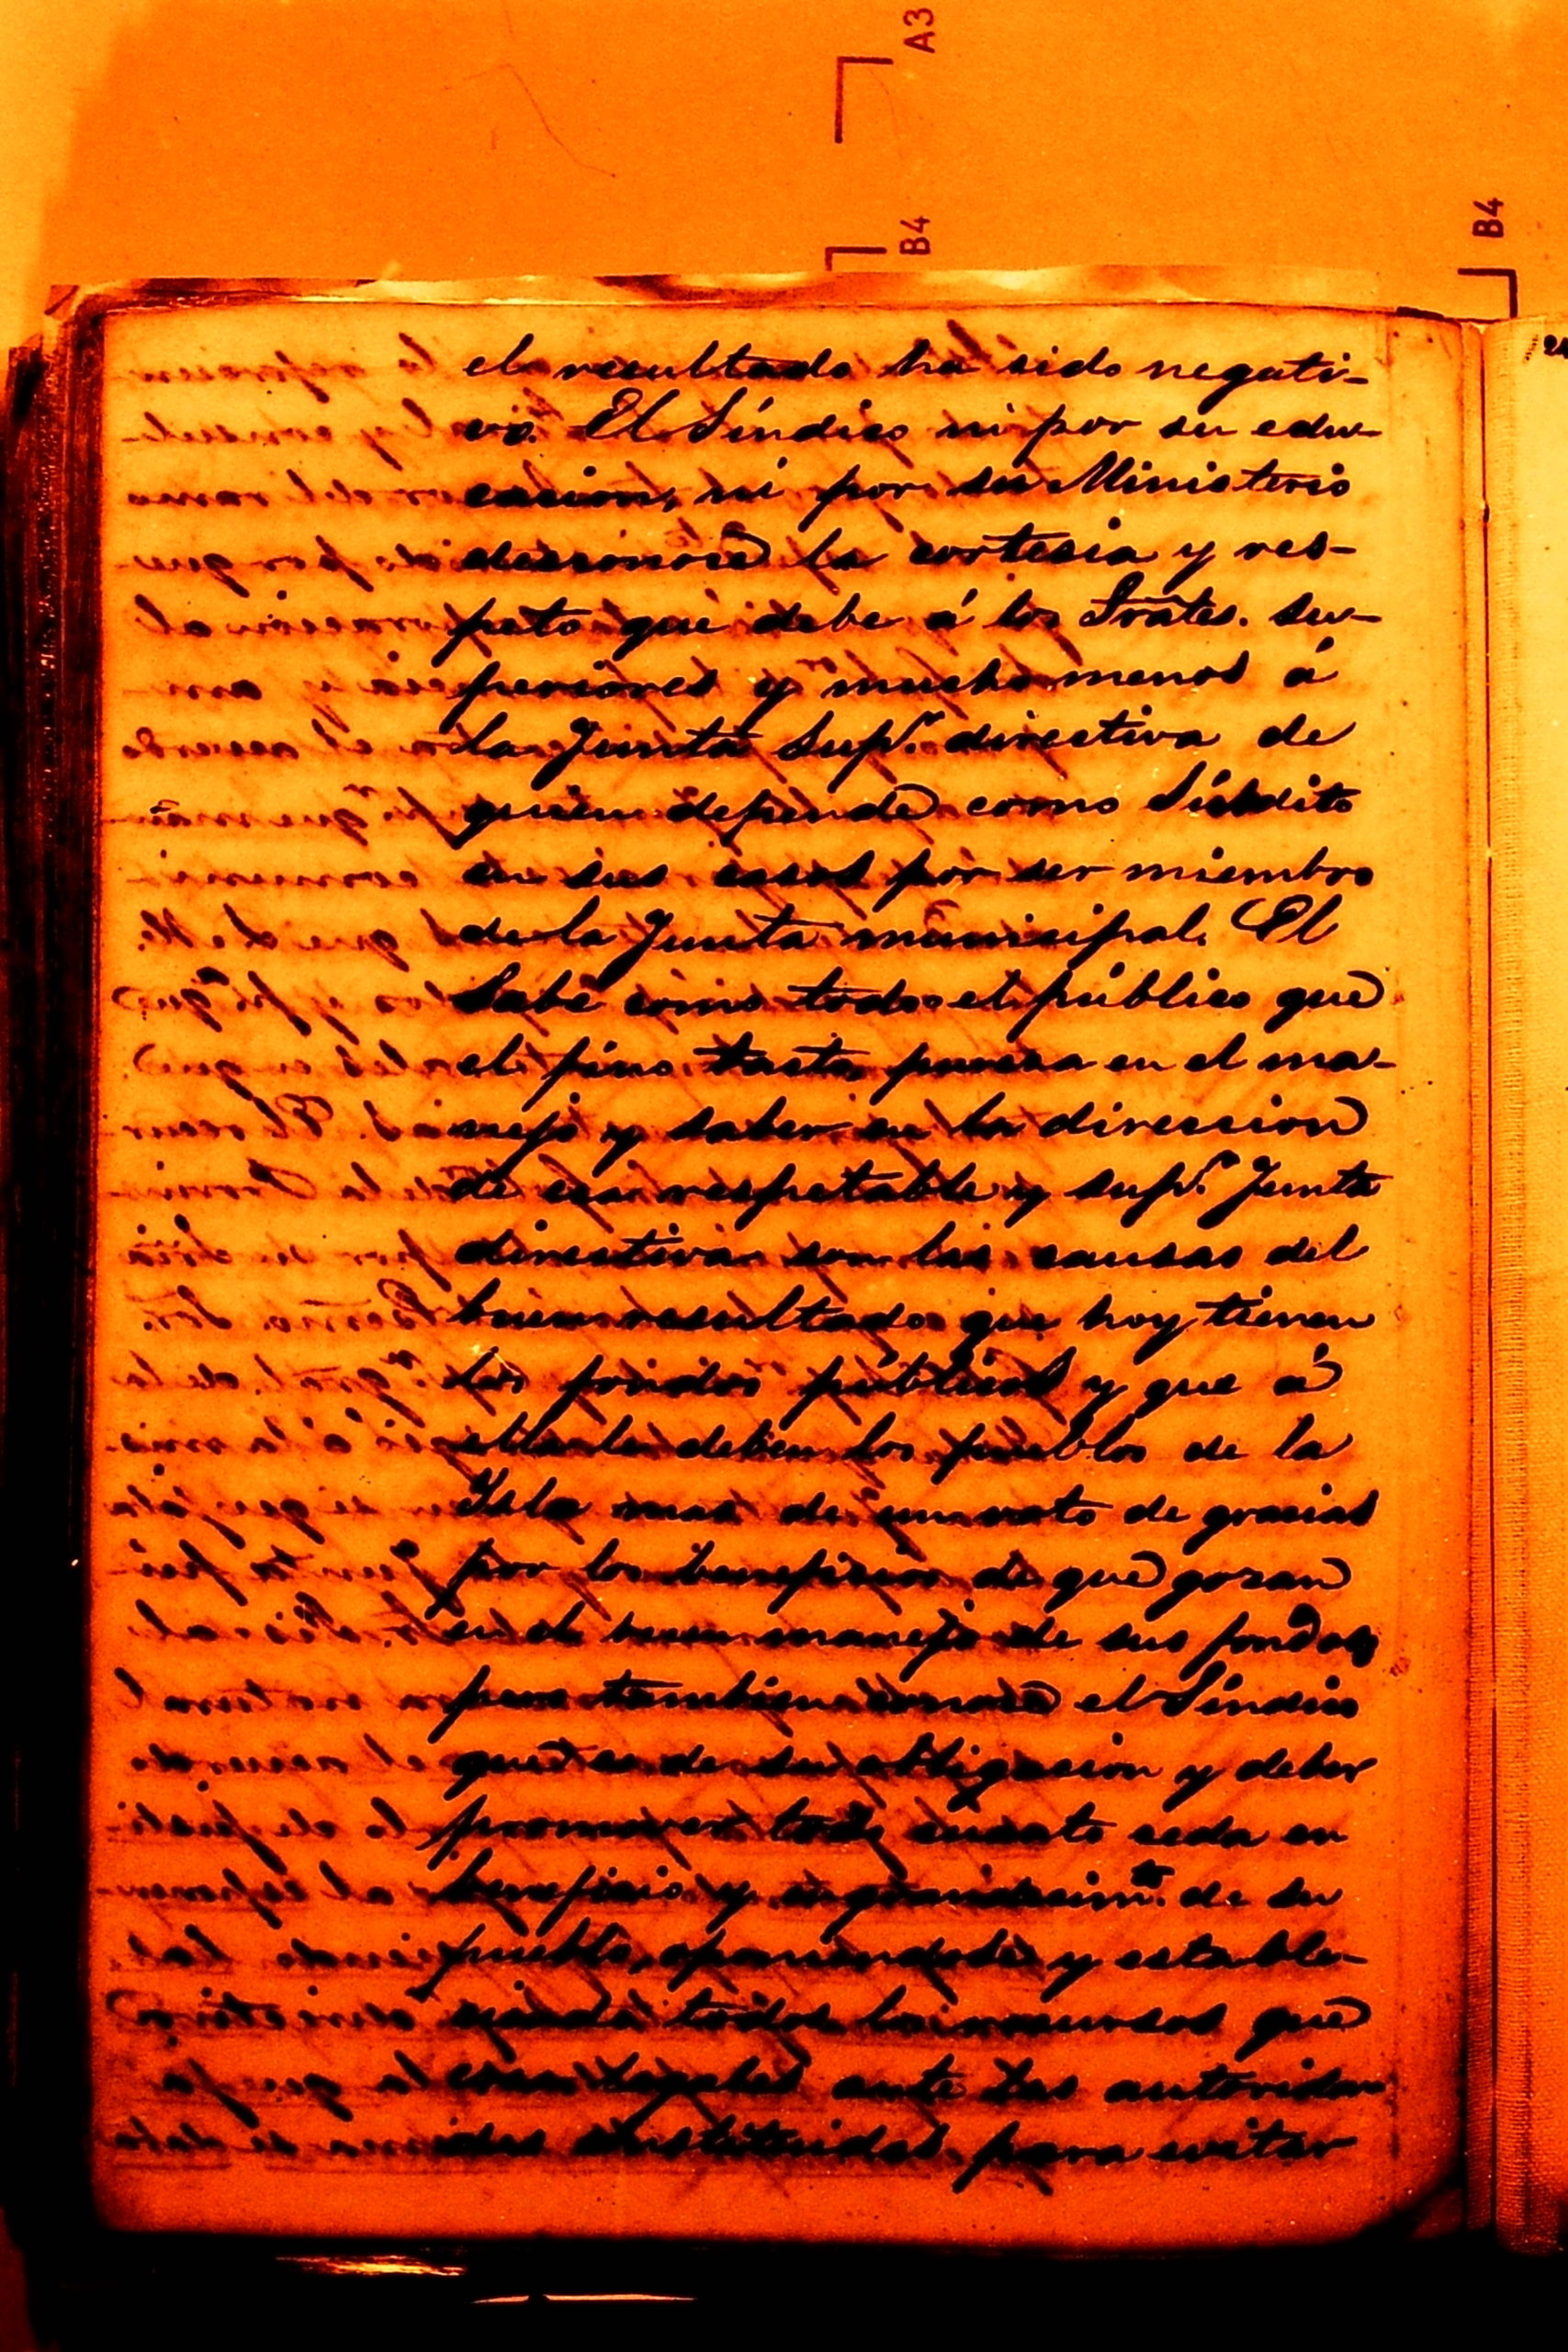 A3
B4
B4
el resultado ha sido negati-
vo. El Síndico ni por su edu-
cacion, ni por su Ministerio
desconoce la cortesia y res-
peto que debe á los Trates. su-
periores y mucho menos á
la Junta Sup.r directiva de
quien depende como Súbdito
en sus casos por ser miembro
de la Junta municipal. El
Sabe como todo el público que
el fino tacto, pureza en el ma-
nejo y saber en la direccion
de esa respetable y sup.r Junta
directiva son las causas del
buen resultado que hoy tienen
los fondos públicos y que á
ella le deben los pueblos de la
Ysla mas de un voto de gracias
por los beneficios de que gozan
en el buen manejo de sus fondos
pero tambien conoce el Síndico
que es de su obligacion y deber
promover todo cuanto ceda en
beneficio y engrandecim.to de su
pueblo, oponiendose y estable-
ciendo todos los recursos que
crea legales ante las autorida-
des constituidas, para evitar